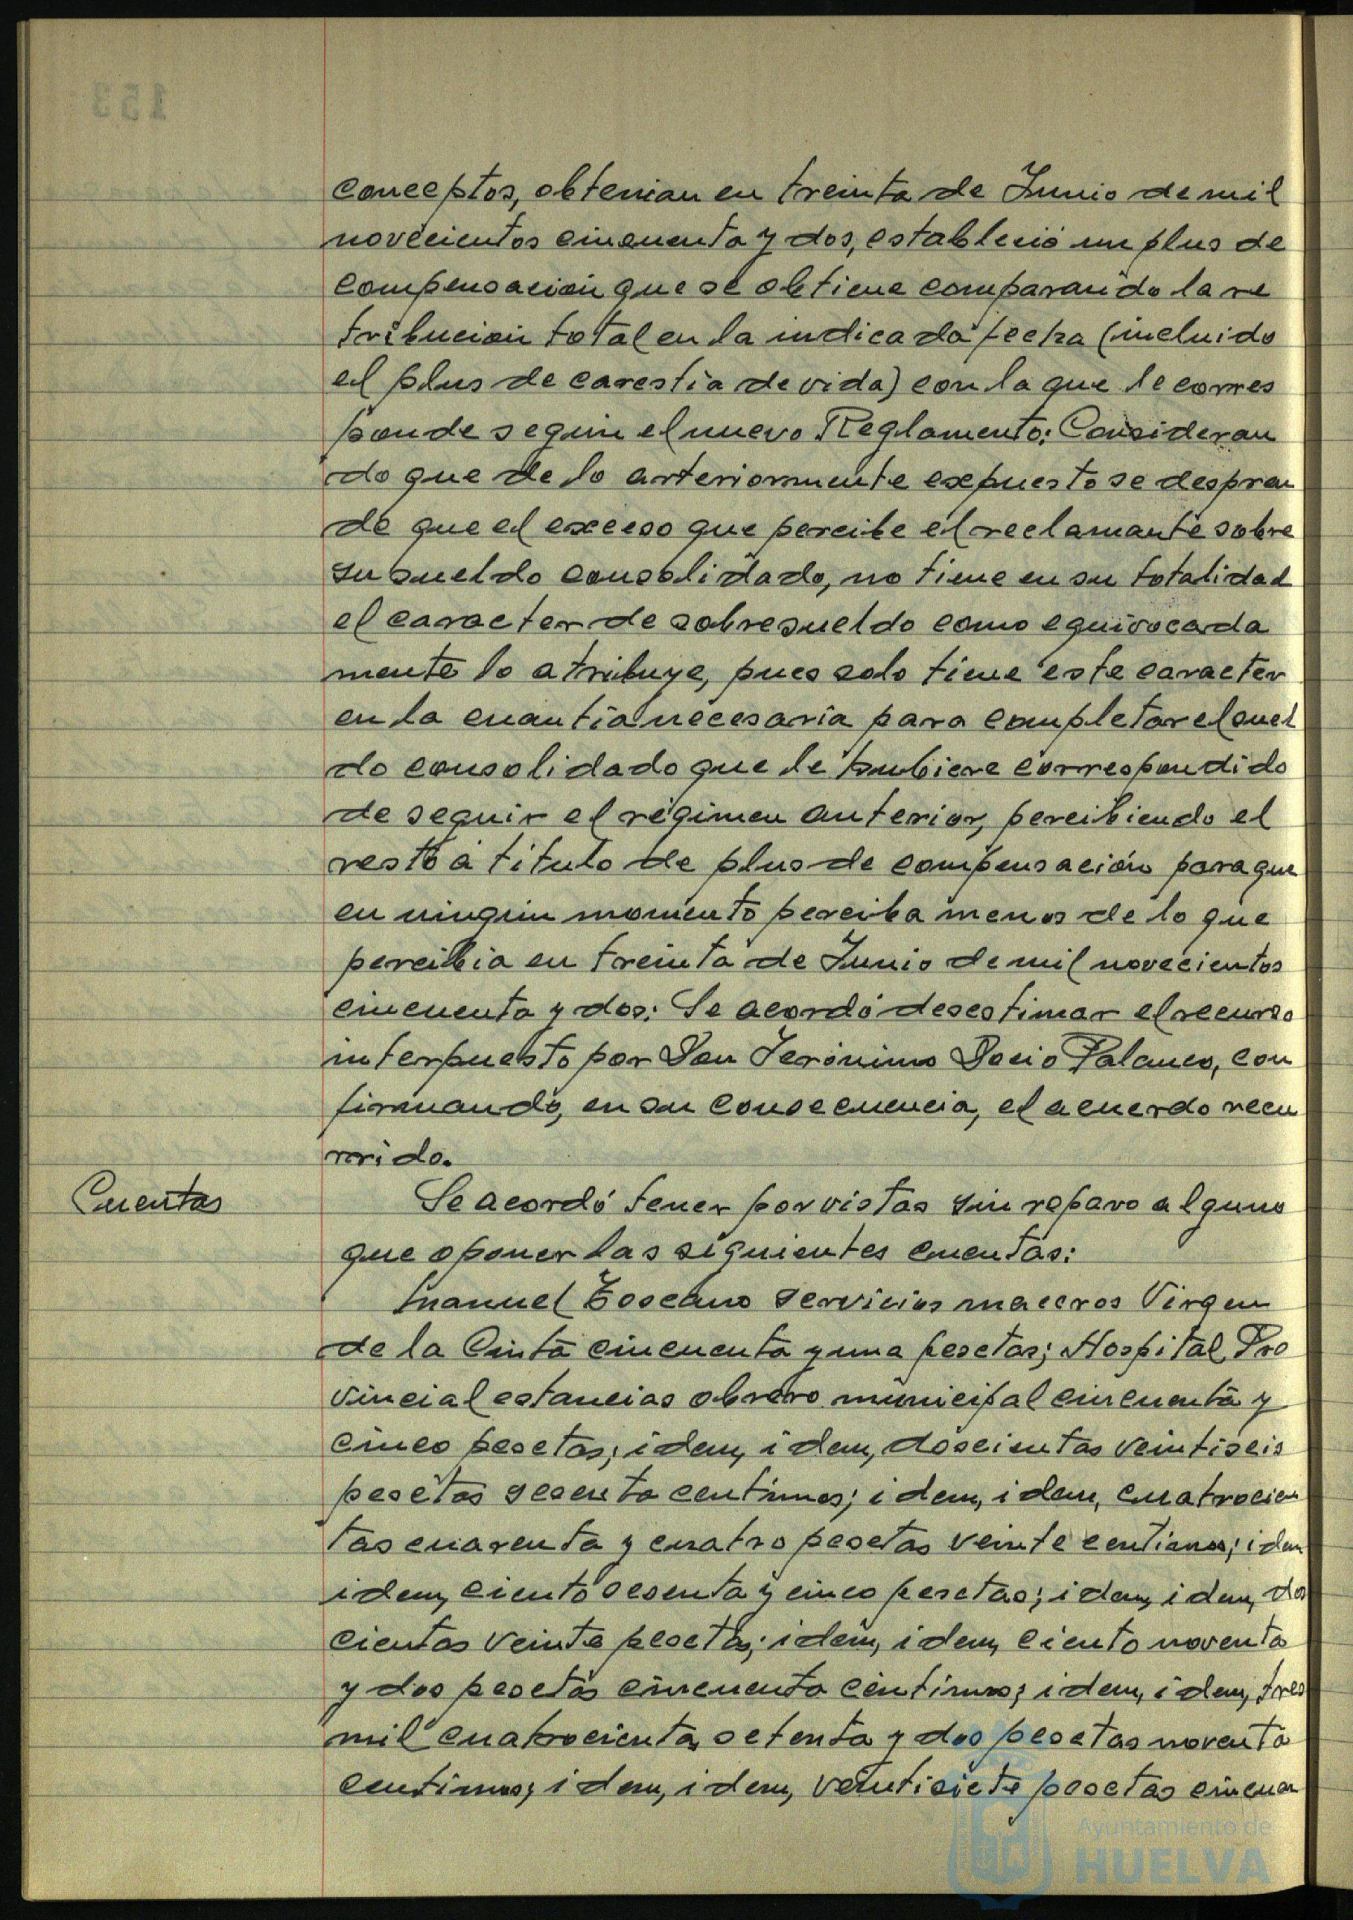 conceptos, obtenian en treinta de Junio de mil
novecientos cincuenta y dos, estableció un plus de
compensación que se obtiene comparando la re
tribución total en la indicada fecha (incluido
el plus de carestia de vida) con la que le corres
ponde según el nuevo Reglamento: Consideran
do que de lo arteriormente expuesto se despren
de que el exceso que percibe el reclamante sobre
su sueldo consolidado, no tiene en su totalidad
el caracter de sobresueldo como equivocada
mente lo atribuye, pues solo tiene este caracter
en la cuantia necesaria para completar el suel
do consolidado que le hubiere correspondido
de seguir el régimen anterior, percibiendo el
resto á titulo de plus de compensación para que
en ningún momento perciba menos de lo que
percibia en treinta de Junio de mil novecientos
cincuenta y dos: Se acordó desestimar el recurso
interpuesto por Don Jerónimo Docio Palanco, con
firmando, en su consecuencia, el acuerdo recu
rrido.
Cuentas
Se acordó tener por vistas sin reparo alguno
que oponer las siguientes cuentas:
Manuel Toscano servicios maceros Virgen
de la Cinta cincuenta y una pesetas; Hospital Pro
vincial estancias obrero municipal cincuenta y
cinco pesetas; idem, idem, doscientas veintiseis
pesetas sesenta centimos; idem, idem, cuatrocien
tas cuarenta y cuatro pesetas veinte centimos; idem
idem, ciento sesenta y cinco pesetas; idem, idem, dos
cientas veinte pesetas; idem, idem, ciento noventa
y dos pesetas cincuenta céntimos; idem, idem, tres
mil cuatrocientas setenta y dos pesetas noventa
centimos; idem, idem, veintisiete pesetas cincuen
Ayuntamiento de
HUELVA